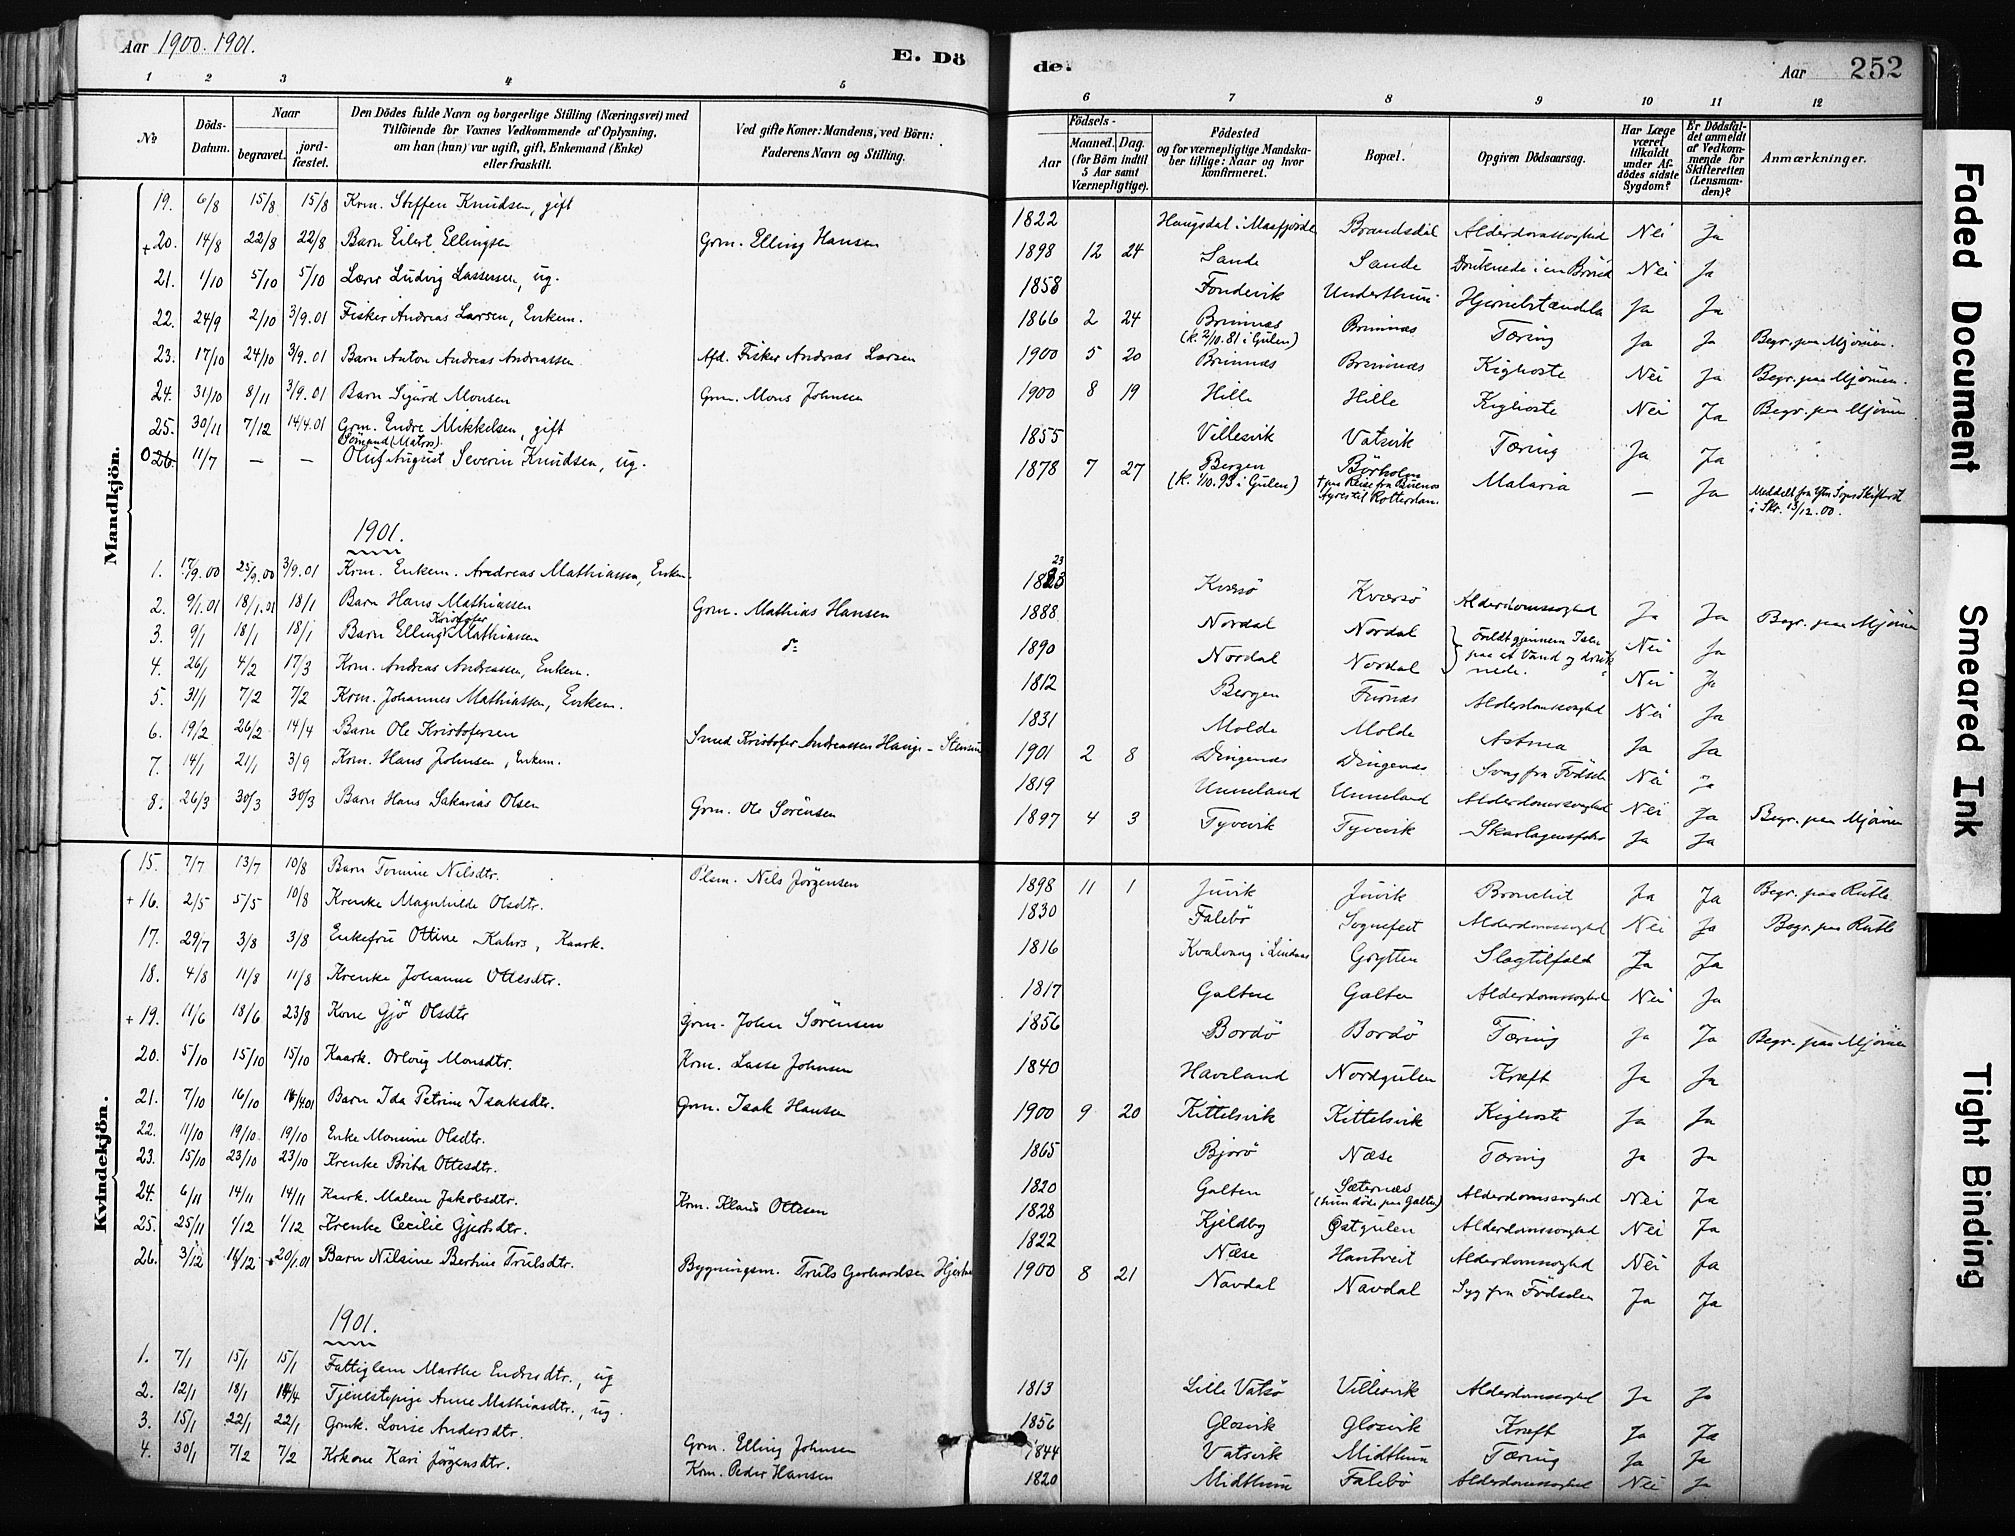 Aar 1900. 1901.
E. Dö
1 2 3 4 5
No
Döds-Datum.
Naar
begravet.
jord-fæstet.
Den Dödes fulde Navn og borgerlige Stilling (Næringsvei) med
Tilföiende for Voxnes Vedkommende af Oplysning,
om han (hun) var ugift, gift, Enkemand (Enke)
eller fraskilt.
Ved gifte Koner: Mandens, ved Börn:
Faderens Navn og Stilling.
Mandkjön.
19. 6/8 15/8 15/8 Krm. Steffen Knudsen, gift
+20. 14/8 22/8 22/8 Barn Eilert Ellingsen Grm. Elling Hansen
21. 1/10 5/10 5/10 Lærer Ludvig Lassesen, ug.
22. 24/9 2/10 3/9.01 Fisker Andreas Larsen, Enkem.
23. 17/10 24/10 3/9.01 Barn Anton Andreas Andreassen Afd. Fisker Andreas Larsen
24. 31/10 8/11 3/9.01 Barn Sigurd Monsen Grm. Mons Johnsen
25. 30/11 7/12 14/4.01 Grm. Endre Mikkelsen, gift
Sömand (Matros)
O 26. 11/7 — — Oluf August Severin Knudsen, ug.
1901.
1. 17/9.00 25/9.00 3/9.01 Krm. Enkem. Andreas Mathiassen, Enkem.
2. 9/1.01 18/1.01 18/1 Barn Hans Mathiassen Grm. Mathias Hansen
3. 9/1 18/1 18/1 Barn Elling Kristofer Mathiassen
4. 26/1 4/2 17/3 Krm. Andreas Andreassen, Enkem.
5. 31/1 7/2 7/2 Krm. Johannes Mathiassen, Enkem.
6. 19/2 26/2 14/4 Barn Ole Kristofersen Smed Kristofer Andreassen Hauge-
7. 14/1 21/1 3/9 Krm. Hans Johnsen, Enkem.
8. 26/3 30/3 30/3 Barn Hans Sakarias Olsen Grm. Ole Sörensen
Kvindekjön.
15. 7/7 13/7 10/8 Barn Tomine Nilsdtr. Plsm. Nils Jörgensen
+16. 2/5 5/5 10/8 Krenke Magnhilde Olsdtr.
17. 29/7 3/8 3/8 Enkefru Ottine Kahrs, Kaark.
18. 4/8 11/8 11/8 Krenke Johanne Ottesdtr.
+19. 11/6 18/6 23/8 Kone Gjö Olsdtr Grm. John Sörensen
20. 5/10 15/10 15/10 Kaark. Orloug Monsdtr. Krm. Lasse Johnsen
21. 7/10 16/10 14/4.01 Barn Ida Petrine Isaksdtr. Grm. Isak Hansen
22. 11/10 19/10 19/10 Enke Monsine Olsdtr.
23. 15/10 23/10 23/10 Krenke Brita Ottesdtr.
24. 6/11 14/11 14/11 Kaark. Malene Jakobsdtr. Krm. Klaus Ottesen
25. 25/11 1/12 1/12 Krenke Cecilie Gjertsdtr.
26. 3/12 14/12 20/1.01 Barn Nilsine Berthine Trulsdtr. Bygningsm. Truls Gerhardsen
1901.
1. 7/1 15/1 15/1 Fattiglem Marthe Endresdtr., ug
2. 12/1 18/1 14/4 Tjenestepige Anne Mathiasdtr., ug.
3. 15/1 22/1 22/1 Grmk. Lovise Andersdtr. Grm. Elling Johnsen
4. 30/1 7/2 7/2 Krkone Kari Jörgensdtr. Krm. Peder Hansen
de.
Aar 252
6 7 8 9 10 11 12
Födsels-
Aar
Maaned. Dag.
(for Börn indtil
5 Aar samt
Værnepligtige).
Födested
og for værnepligtige Mandska-
ber tillige: Naar og hvor
konfirmeret.
Bopæl.
Opgiven Dödsaarsag.
Har Læge
været
tilkaldt
under Af-
dödes sidste
Sygdom?
Er Dödsfal-
det anmeldt
af Vedkom-
mende for
Skifteretten
(Lensman-
den)?
Anmærkninger.
1822 Haugsdal i Masfjorden Brandsdal Alderdomssvaghed Nei Ja
1898 12 24 Sande Sande Druknede i en Brönd Nei Ja
1858 Fondevik Underthun Ja Ja
1866 2 24 Brinnæs Brinnæs Tæring Ja Ja Begr. paa Mjömen.
(K. 2/10.81 i Gulen)
1900 5 20 Brinnæs Brinnæs Kighoste Nei Ja Begr. paa Mjömen.
1900 8 19 Hille Hille Kighoste Nei Ja Begr. paa Mjömen
1855 Villesvik Vatsvik Tæring Ja Ja
1878 7 27 Bergen Börholm Malaria — Ja
(K. 1/10.93 i Gulen) + paa Reise fra Buenos
Ayres til Rotterdam.
Meddelt fra Ytre Sogns Skifteret
i Skr. 13/12.00.
23
1823 Kversö Kværsö Alderdomssvaghed Ja Ja Begr. paa Mjömen
1888 Nordal Nordal Faldt gjennem Isen Nei Ja
1890 Nordal Nordal paa et Vand og druk-
nede. Nei Ja
1812 Bergen Furnæs Alderdomssvaghed Nei Ja
1831 Molde Molde Astma Ja Ja
1901 2 8 Dingenæs Dingenæs Svag fra Födselen Nei Ja
1819 Unneland Unneland Alderdomssvaghed Nei Ja Begr. paa Mjömen
1897 4 3 Tyvevik Tyvevik Skarlagensfeber Ja Ja
1898 11 1 Juvik Juvik Bronchit Ja Ja Begr. paa Rutle
1830 Falebö Sognefest Alderdomssvaghed Nei Ja Begr. paa Rutle
1816 Kvalvaag i Lindaas Grytten Slagtilfald Ja Ja
1817 Galten Galten Alderdomssvaghed Nei Ja
1856 Bordö Bordö Tæring Ja Ja Begr. paa Mjömen
1840 Haveland Nordgulen Kræft Ja Ja
1900 9 20 Kittelsvik Kittelsvik Kighoste Ja Ja
1865 Bjorö Næse Tæring Ja Ja
1820 Galten Sæternæs Alderdomssvaghed Nei Ja
(hun döde paa Galten)
1828 Kjeldby Östgulen Alderdomssvaghed Nei Ja
1822 Næse Hantveit Alderdomssvaghed Nei Ja
1900 8 21 Navdal Navdal Syg fra Födselen Ja Ja
1813 Lille Vatsö Villesvik Alderdomssvaghed Ja Ja
1856 Glosvik Glosvik Kræft Ja Ja
1844 Vatsvik Midthun Tæring Ja Ja
1820 Midthun Falebö Alderdomssvaghed Nei Ja
Faded Document
Smeared Ink
Tight Binding